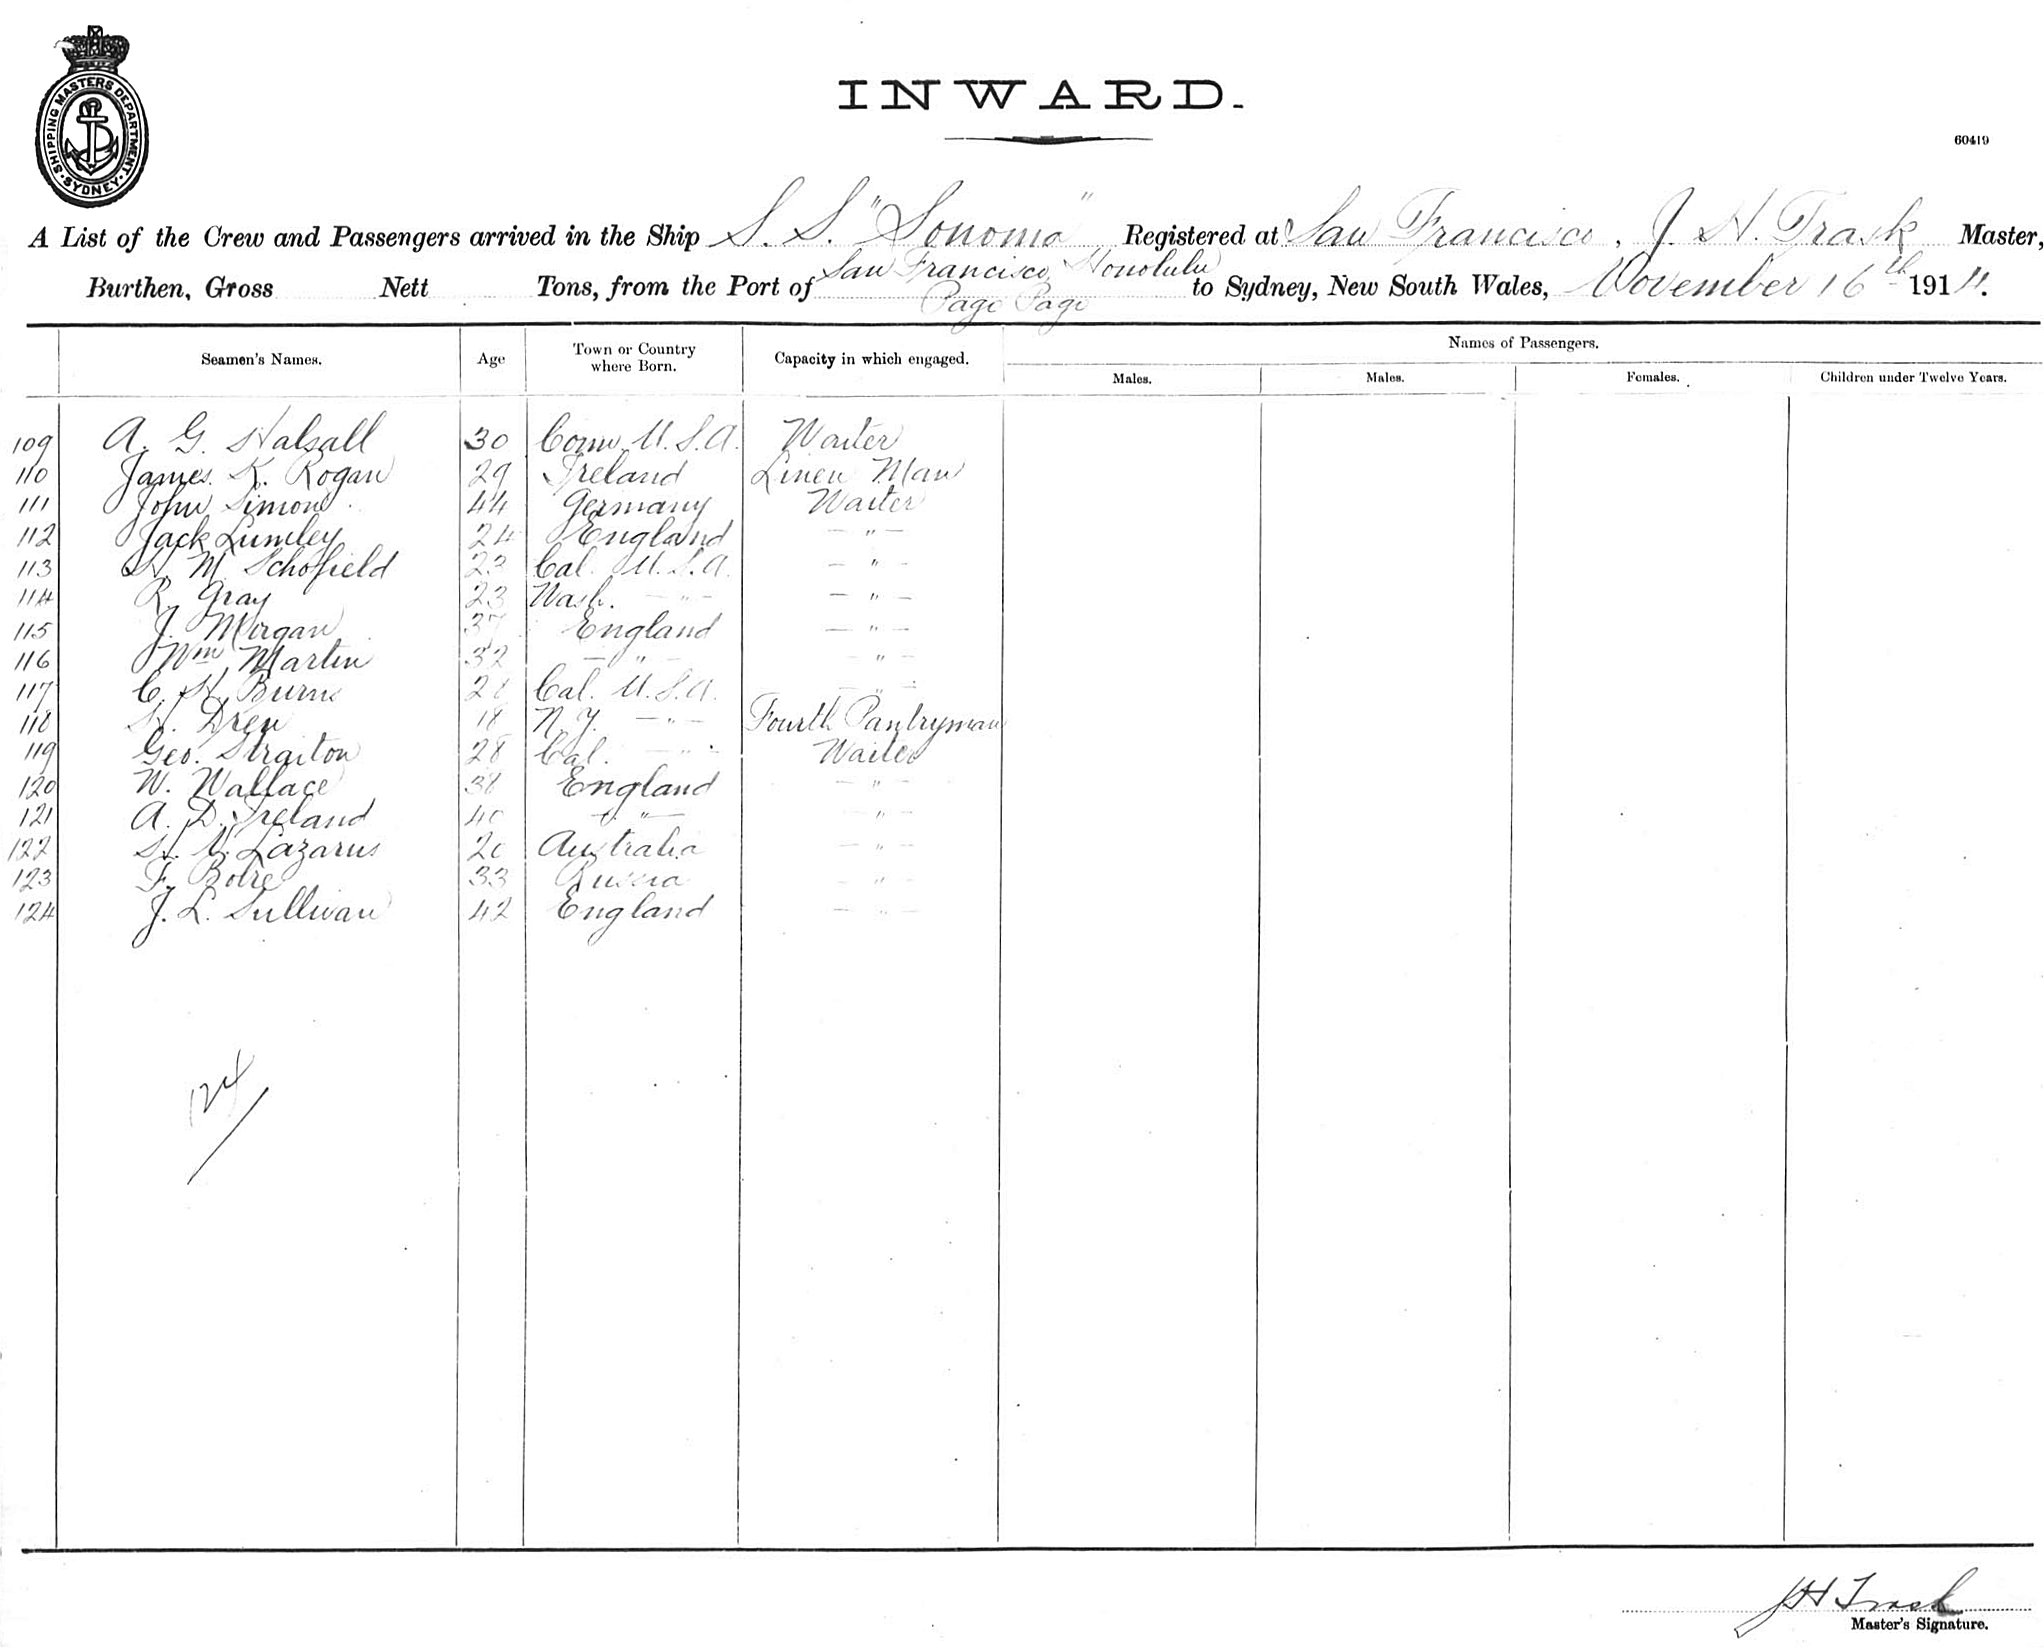 SHIPPING MASTERS DEPARTMENT. SYDNEY.
INWARD.
60419
A List of the Crew and Passengers arrived in the Ship S. S. "Sonoma" Registered at San Francisco, J. H. Trask Master,
San Francisco, Honolulu
Burthen, Gross Nett Tons, from the Port of to Sydney, New South Wales, November 16th 1914.
Pago Pago
Seamen's Names. Age Town or Country where Born. Capacity in which engaged. Names of Passengers.
Males. Males. Females. Children under Twelve Years.
109 A. G. Halsall 30 Conn. U.S.A. Waiter
110 James K. Rogan 29 Ireland Linen Man
111 John Simon 44 Germany Waiter
112 Jack Lumley 24 England — " —
113 H. M. Schofield 23 Cal. U.S.A. — " —
114 R. Gray 23 Wash. — " — — " —
115 J. Morgan 37 England — " —
116 Wm Martin 32 — " — — " —
117 C. H. Burns Cal. U.S.A. — " —
118 H. Drew 18 N.Y. — " — Fourth Pantryman
119 Geo. Straiton 28 Cal. — " — Waiter
120 W. Wallace 38 England — " —
121 A. D. Ireland 40 — " — — " —
122 H. V. Lazarus 20 Australia — " —
123 F. 33 Russia — " —
124 J. L. Sullivan 42 England — " —
124
J H Trask
Master's Signature.